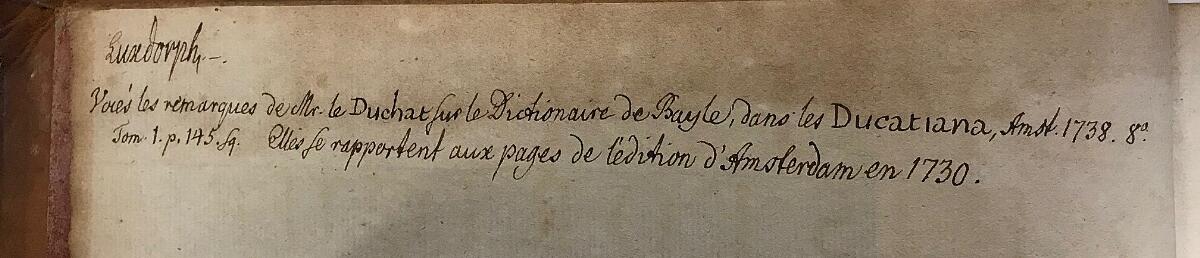 Luxdorph.
Voiés les remarques de Mr. le Duchat sur le Dictionaire de Bayle, dans les Ducatiana, Amst. 1738. 8º.
Tom. 1. p. 145. sq. Elles se rapportent aux pages de l'édition d'Amsterdam en 1730.